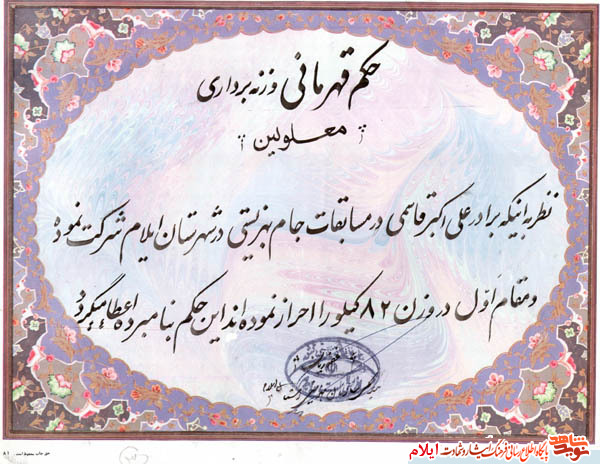 حکم قهرمانی وزنه برداری
معلولین
نظر به اینکه برادر علی اکبر قاسمی در مسابقات جام بهزیستی در شهرستان ایلام شرکت نموده
و مقام اوّل در وزن ۸۲ کیلو را احراز نموده اند این حکم بنامبرده اعطا میگردد
نوید شاهد
پایگاه اطلاع رسانی فرهنگ ایثار و شهادت ایلام
حق چاپ محفوظ است
۸۱